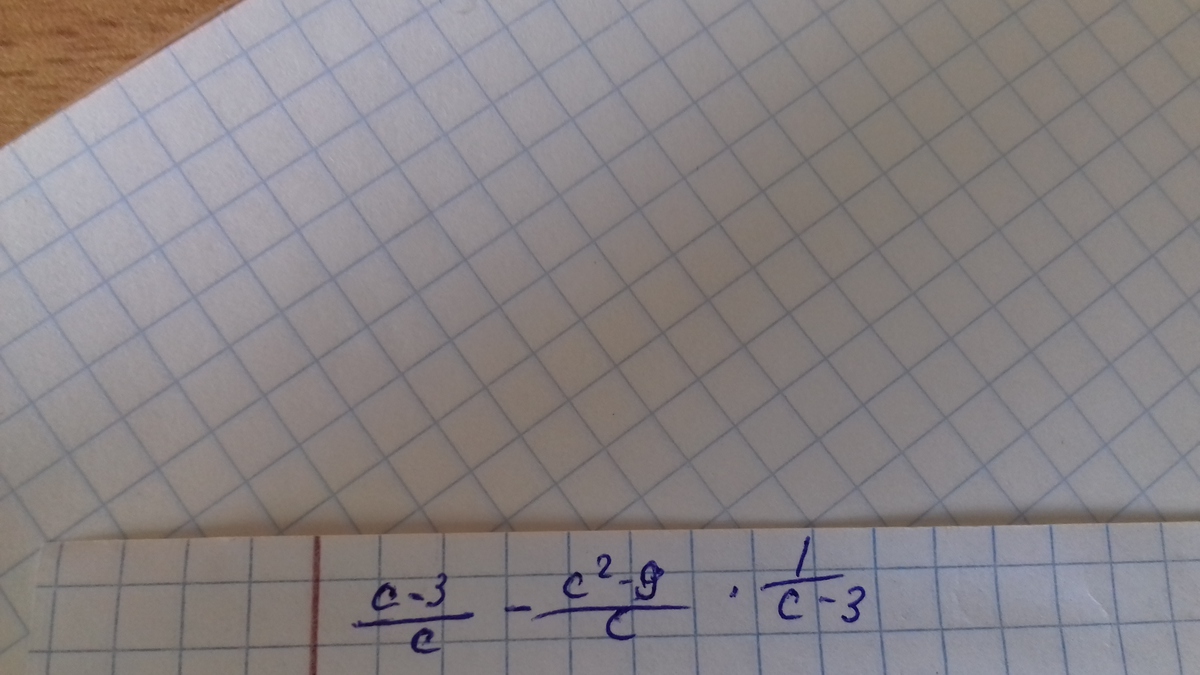 (c-3)/c - (c²-9)/c · 1/(c-3)